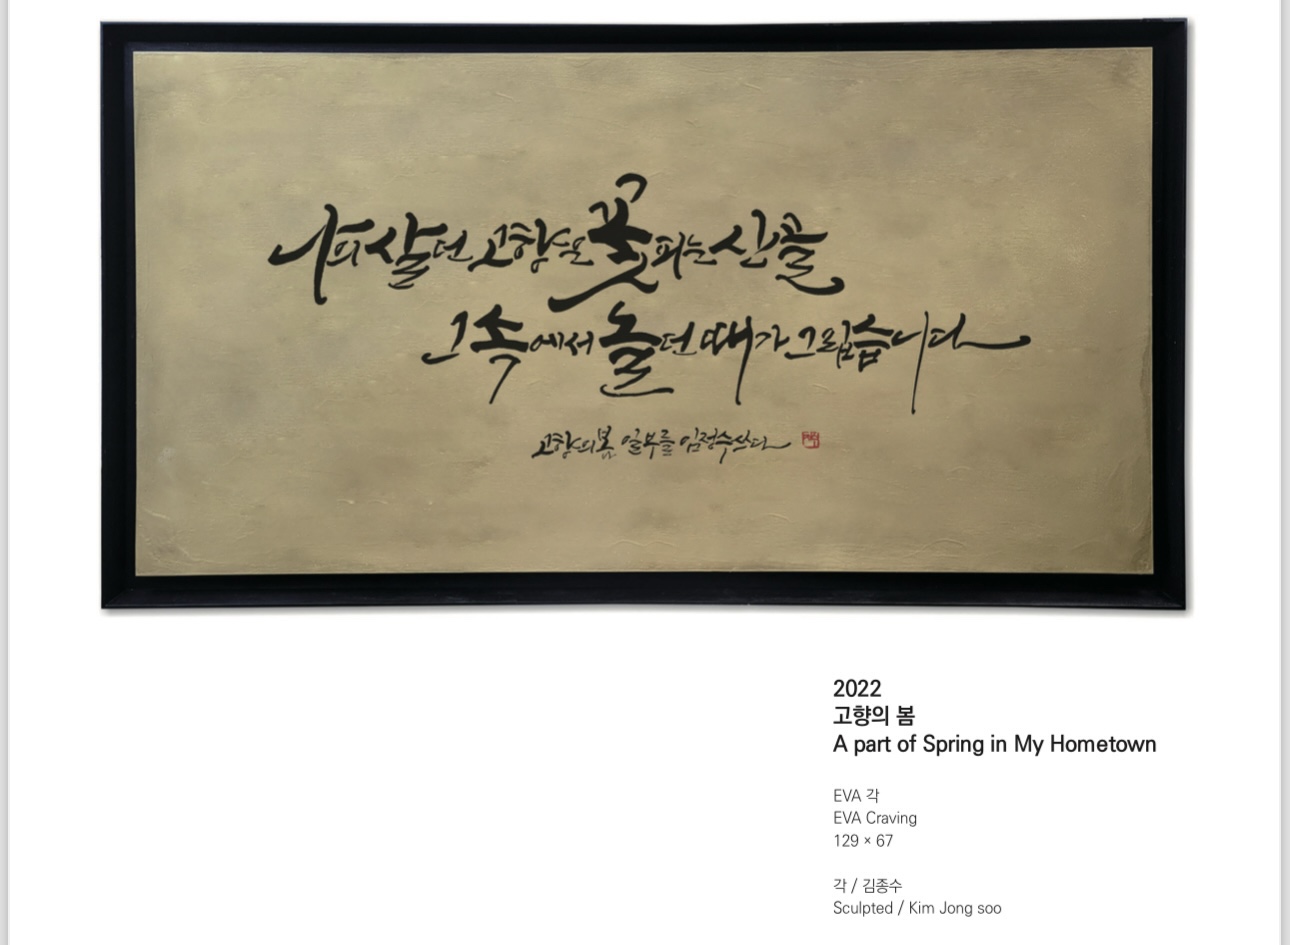 나의 살던 고향은 꽃 피는 산골
그 속에서 놀던 때가 그립습니다
고향의 봄 일부를 임정수 쓰다
2022
고향의 봄
A part of Spring in My Hometown
EVA 각
EVA Craving
129 × 67
각 / 김종수
Sculpted / Kim Jong soo